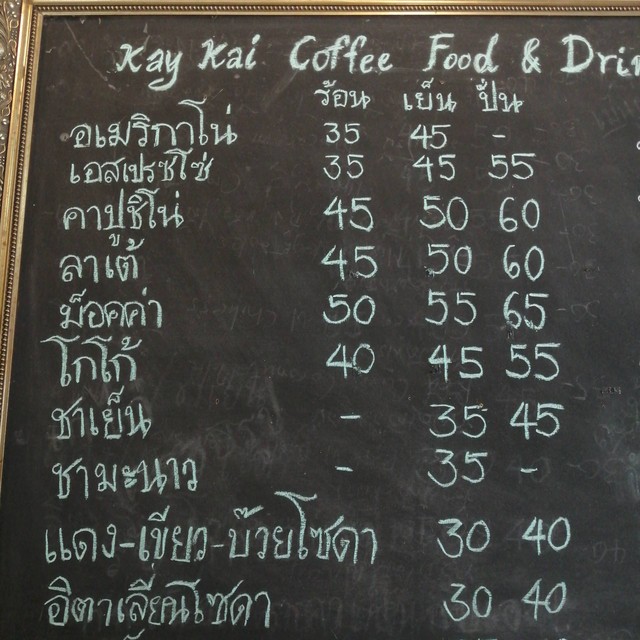 Kay Kai Coffee Food & Drin
ร้อน เย็น ปั่น
อเมริกาโน่ 35 45 -
เอสเปรซโซ่ 35 45 55
คาปูชิโน่ 45 50 60
ลาเต้ 45 50 60
ม็อคค่า 50 55 65
โกโก้ 40 45 55
ชาเย็น - 35 45
ชามะนาว - 35 -
แดง-เขียว-บ๊วยโซดา 30 40
อิตาเลี่ยนโซดา 30 40